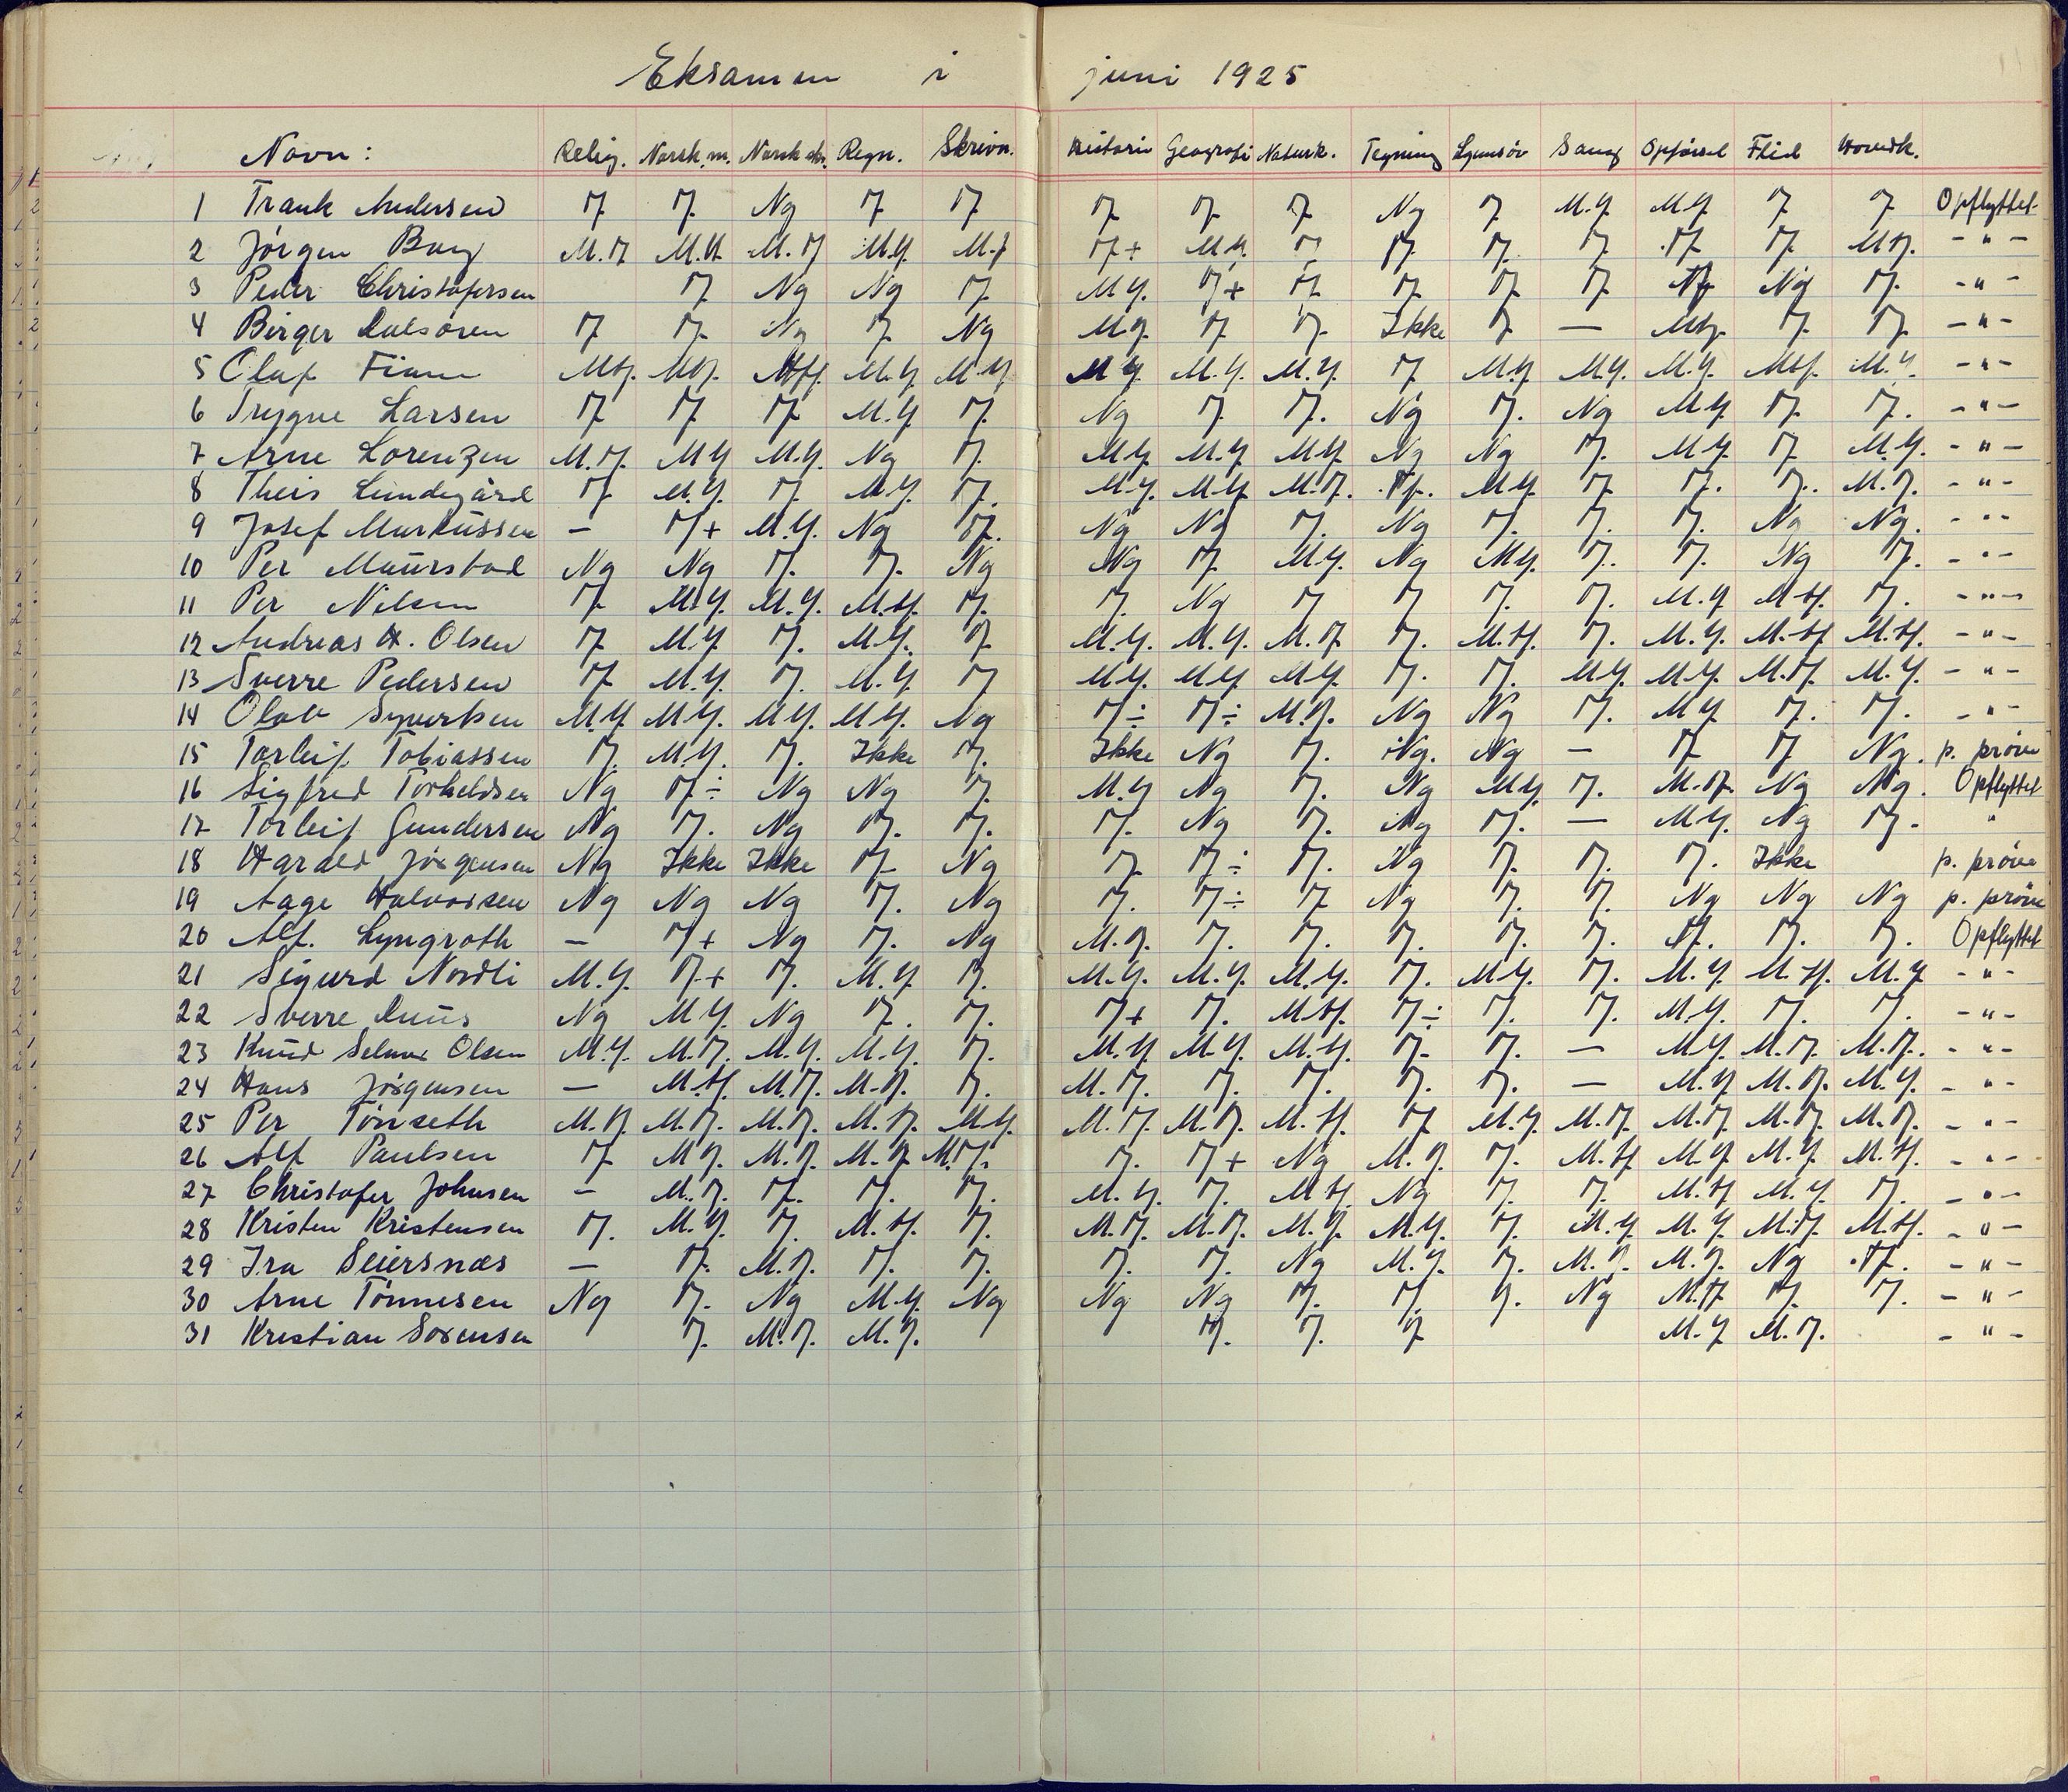 Eksamen i juni 1925
Navn: Relig. Norsk m. Norsk skr. Regn. Skrivn. Historie Geografi Naturk. Tegning Gymn.öv Sang Opförsel Flid Hovedk.
1 Frank Andersen G G. Ng G G G G. G Ng G M.G M.G G G Opflyttet
2 Jörgen Berg M.G M.G. M.G M.G. M.G G+ M.G. G G. G. G. G G M.G. - " -
3 Peder Christofersen G Ng Ng G. M.G. G+ G G G G Ng G. - " -
4 Birger Dalsören G G. Ng G. Ng M.G. G G. Ikke G — M.G. G. G. - " -
5 Olaf Finne M.G. M.G. M.G. M.G. M.G. M.G. M.G. M.G. G M.G. M.G. M.G. M.G. M.G. - " -
6 Trygve Larsen G G G M.G G. Ng G. G. Ng G. Ng M.G. G. G. - " -
7 Arne Lorenzen M.G. M.G M.G. Ng G. M.G. M.G M.G Ng Ng G. M.G. G M.G. - " -
8 Theis Lundegård G M.G. G. M.G. G. M.G. M.G. M.G. G. M.G. G G. G. M.G. - " -
9 Josef Markussen — G+ M.G. Ng G. Ng Ng G. Ng G. G. G. Ng Ng. - " -
10 Per Maurstad Ng Ng G. G. Ng Ng G M.G. Ng M.G. G. G. Ng G. - " -
11 Per Nilsen G M.G. M.G. M.G. G. G. Ng G G G. G. M.G M.G. G. - " -
12 Andreas H. Olsen G M.G G. M.G. G M.G. M.G. M.G G. M.G. G. M.G. M.G M.G. - " -
13 Sverre Pedersen G M.G. G. M.G. G M.G. M.G M.G. G. G. M.G. M.G. M.G. M.G. - " -
14 Olav Syvertsen M.G M.G. M.G. M.G. Ng G÷ G÷ M.G. Ng Ng G. M.G G. G. - " -
15 Torleif Tobiassen G. M.G. G. Ikke G. Ikke Ng G. Ng. Ng — G G Ng. p. pröve
16 Sigfred Torkeldsen Ng G÷ Ng Ng G. M.G Ng G. Ng M.G. G. M.G. Ng Ng. Opflyttet
17 Torleif Gundersen Ng G. Ng G. G. G. Ng G. Ng G. — M.G. Ng G. "
18 Harald Jörgensen Ng Ikke Ikke G Ng G. G÷ G. Ng G. G. G. Ikke p. pröve
19 Aage Halvorsen Ng Ng Ng G. Ng G. G÷ G Ng G. G. Ng Ng Ng p. pröve
20 Alf. Lyngroth — G+ Ng G. Ng M.G. G. G. G. G. G. G. G. G. Opflyttet
21 Sigurd Nordli M.G. G+ G. M.G G. M.G. M.G. M.G. G. M.G. G. M.G M.G. M.G - " -
22 Sverre Duus Ng M.G. Ng G. G. G+ G. M.G. G÷ G. G. M.G. G. G. - " -
23 Knud Selmer Olsen M.G. M.G. M.G. M.G. G. M.G M.G. M.G. G. G. — M.G. M.G. M.G. - " -
24 Hans Jörgensen — M.G. M.G. M.G. G. M.G. G. G. G. G. — M.G M.G. M.G. - " -
25 Per Tönseth M.G. M.G. M.G. M.G. M.G. M.G. M.G. M.G. G M.G M.G. M.G. M.G. M.G. - " -
26 Alf Paulsen G M.G. M.G. M.G M.G. G. G+ Ng M.G. G. M.G M.G M.G M.G. - " -
27 Christofer Johnsen — M.G. G. G. G. M.G. G. M.G Ng G G. M.G M.G. G. - " -
28 Kristen Kristensen G. M.G. G. M.G. G. M.G. M.G. M.G. M.G. G. M.G M.G M.G. M.G. - " -
29 Ira Seiersnæs — G. M.G. G. G. G. G. Ng M.G. G. M.G. M.G. Ng G. - " -
30 Arne Tönnesen Ng G. Ng M.G. Ng Ng Ng G. G. G. Ng M.G G. G. - " -
31 Kristian Sörensen G. M.G. M.G. G. G. G M.G M.G. - " -